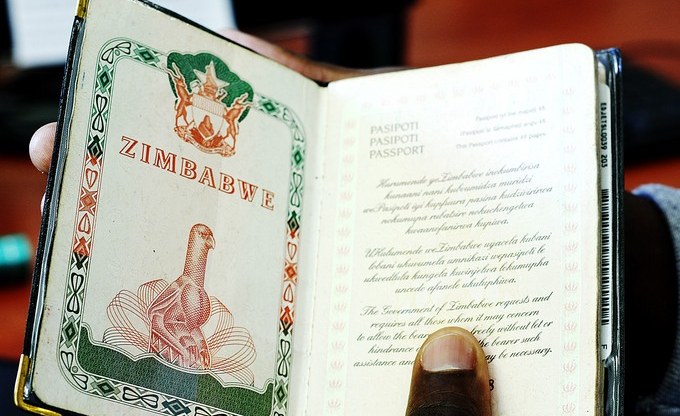 ZIMBABWE
PASIPOTI
PASIPOTI
PASSPORT
Hurumende yeZimbabwe inokumbirisa
kunaani nani kubvumidza muridzi
wePasipoti iyi kupfuura pasina kudzivirirwa
nokumupa rubatsiro nokuchengetwa
kwaanofanirwa kupiwa.
UHulumende weZimbabwe uyacela kubani
lobani ukuvumela umnikazi wepasipoti le
ukwedlula kungela kuvinjelwa lokumupha
uncedo afanele ukutuphiwa.
The Government of Zimbabwe requests and
requires all those whom it may concern
to allow the bearer freely without let or
hindrance the bearer such
assistance may be necessary.